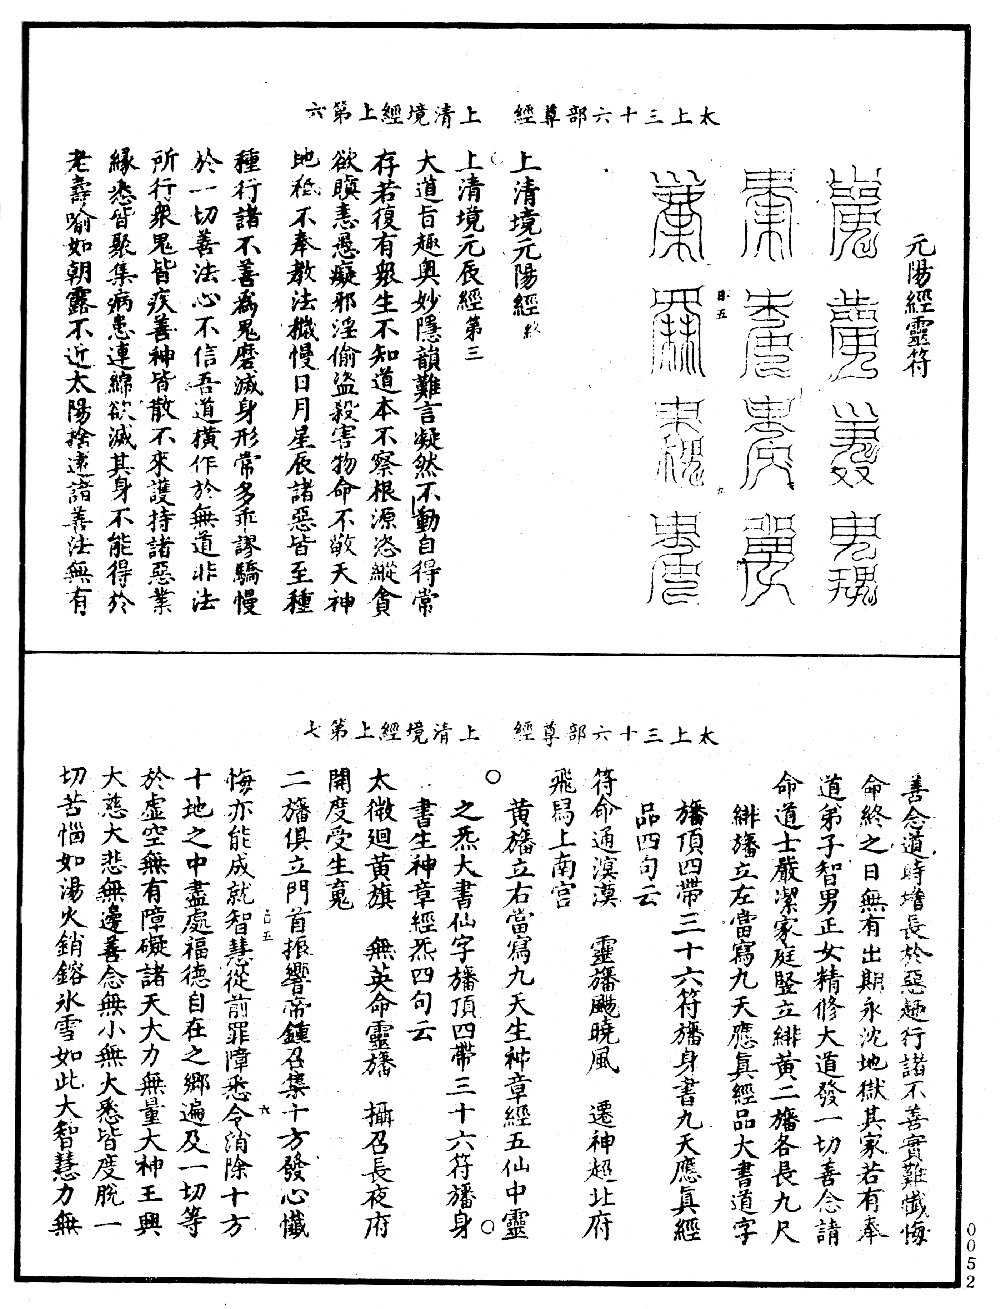 太上三十六部尊經　上清境經上第六
元陽經靈符
日五
九
上清境元陽經終
上清境元辰經第三
大道旨趣奧妙隱韻難言凝然不動自得常
存若復有衆生不知道本不察根源恣縱貪
欲瞋恚愚癡邪淫偷盜殺害物命不敬天神
地秖不奉教法穢慢日月星辰諸惡皆至種
種行諸不善為鬼磨滅身形常多乖謬驕慢
於一切善法心不信吾道橫作於無道非法
所行衆鬼皆疾善神皆散不來護持諸惡業
緣悉皆聚集病患連綿欲滅其身不能得於
老壽喻如朝露不近太陽捨遠諸善法無有
太上三十六部尊經　上清境經上第七
善念道時增長於惡趣行諸不善實難懺悔
命終之日無有出期永沈地獄其家若有奉
道弟子智男正女精修大道發一切善念請
命道士嚴潔家庭竪立緋黃二旛各長九尺
緋旛立左當寫九天應真經品大書道字
旛頂四帶三十六符旛身書九天應真經
品四句云
符命通溟漠　靈旛颺曉風　遷神超北府
飛舄上南宮
黃旛立右當寫九天生神章經五仙中靈
之炁大書仙字旛頂四帶三十六符旛身
書生神章經炁四句云
太微迴黃旗　無英命靈旛　攝召長夜府
開度受生䰟
二旛俱立門首振響帝鍾召集十方發心懺
悔亦能成就智慧從前罪障悉令消除十方
日五
六
十地之中盡處福德自在之鄉遍及一切等
於虛空無有障礙諸天大力無量大神王興
大慈大悲無邊善念無小無大悉皆度脫一
切苦惱如湯火銷鎔氷雪如此大智慧力無
0052